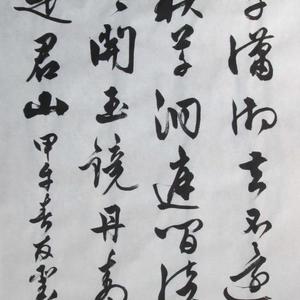 子瀟湘去不還
秋草洞庭間淡
開玉鏡丹青
是君山甲午春